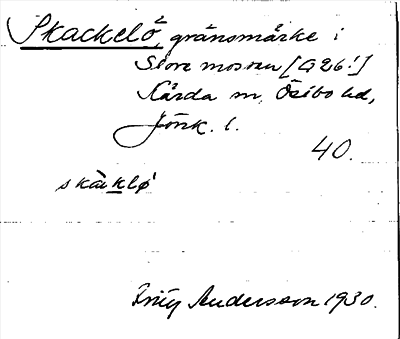 Skackelö, gränsmärke i
Store mossen [G26!]
Kärda sn, Östbo hd,
Jönk. l.
40.
skàklø
Anderson 1930.